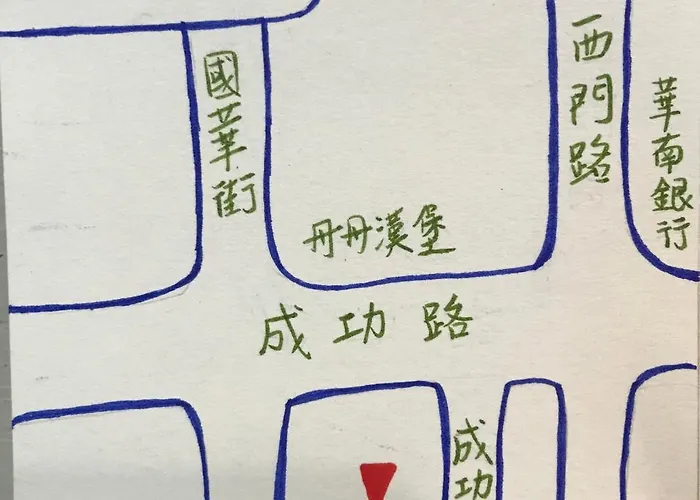 國華街
西門路
華南銀行
丹丹漢堡
成功路
成功